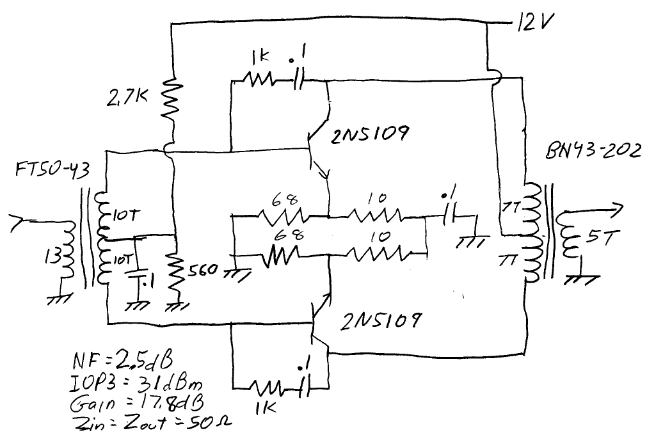 12V
1K .1
2.7K
2N5109
FT50-43
BN43-202
10T
68 10 .1
7T
13
10T
68 10
7T
5T
.1
560
2N5109
.1
1K
NF=2.5dB
IOP3=31dBm
Gain=17.8dB
Zin=Zout=50Ω